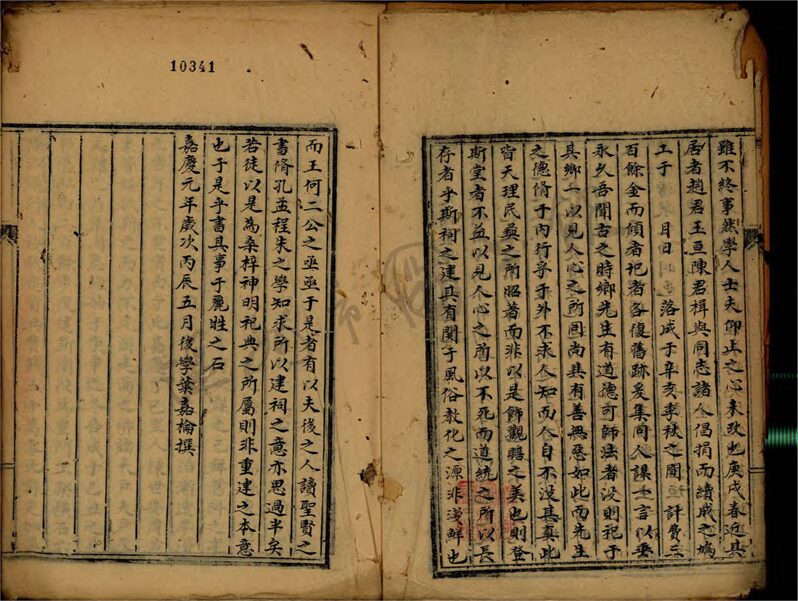 雖不終事然學人士夫仰止之心未改也庚戌春近其
居者趙君王亘陳君楫與同志諸人倡捐而續成之鳩
工于 月日 落成于辛亥季秋之間 計費三
百餘金而傾者圯者各復舊跡爰集同人謀士言以垂
永久吾聞古之時鄉先生有道德可師法者沒則祀于
其鄉一以見人心之所同尚其有善無惡如此而先生
之德脩于內行孚于外不求人知而人自不沒其真此
皆天理民彝之所昭著而非以是飾觀瞻之美也則登
斯堂者不益以見人心之所以不死而道統之所以長
存者乎斯祠之建具有関于風俗教化之源非淺鮮也
10341
而王何二公之亟亟于是者有以夫後之人讀聖賢之
書脩孔孟程朱之學知求所以建祠之意亦思過半矣
若徒以是為桑梓神明祀典之所屬則非重建之本意
也于是乎書其事于麗牲之石
嘉慶元年歲次丙辰五月後學葉嘉棆撰